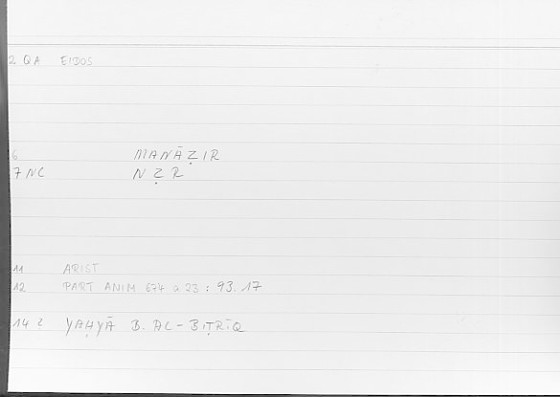 2 QA EIDOS
6 MANĀẒIR
7 NC NẒR
11 ARIST
12 PART ANIM 674 a 23 : 93.17
14 2 YAḤYĀ B. AL-BIṬRĪQ